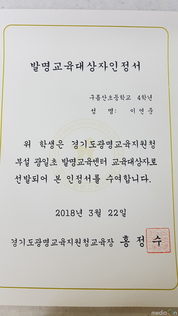 발명교육대상자인정서
구름산초등학교 4학년
성 명: 이연준
위 학생은 경기도광명교육지원청
부설 광일초 발명교육센터 교육대상자로
선발되어 본 인정서를 수여합니다.
2018년 3월 22일
경기도광명교육지원청교육장 홍정수